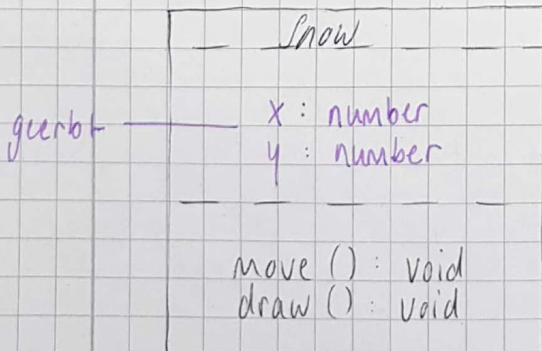 Snow
x : number
y : number
move () : void
draw () : void